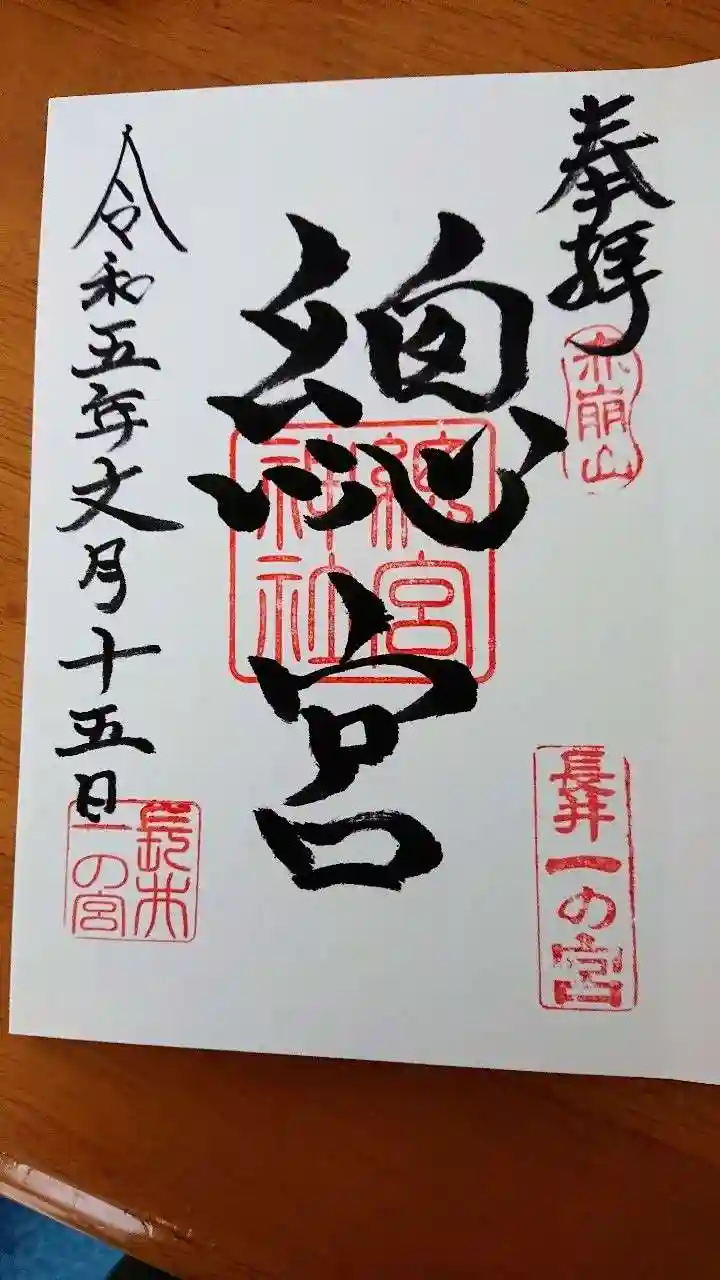 奉拝
赤崩山
長井一の宮
總宮
總宮
神社
令和五年文月十五日
長井
一の宮